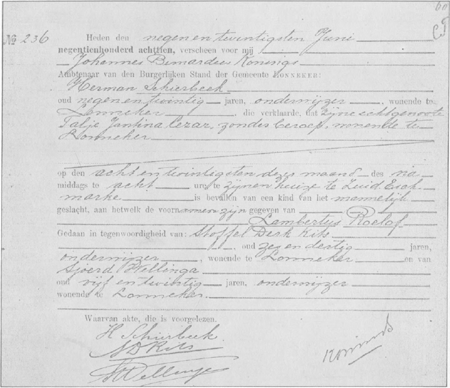 No 236
Heden den negen en twintigsten Juni
negentienhonderd achttien, verscheen voor mij
Johannes Bernardus Konings
Ambtenaar van den Burgerlijken Stand der Gemeente LONNEKER:
Herman Schierbeek
oud negen en twintig jaren, onderwijzer, wonende te
Lonneker die verklaarde, dat zijne echtgenoote
Jantina Cezar, zonder beroep, wonende te
Lonneker
op den acht en twintigsten dezer maand des na
middags te acht ure, te zijnen huize te Zuid Esch
marke is bevallen van een kind van het mannelijk
geslacht, aan hetwelk de voornamen zijn gegeven van
Lambertus Roelof
Gedaan in tegenwoordigheid van: Stoffel Derk
oud zes en dertig jaren,
onderwijzer, wonende te Lonneker en van
Sjoerd Hellinga
oud vijf en twintig jaren, onderwijzer
wonende te Lonneker
Waarvan akte, die is voorgelezen.
H Schierbeek